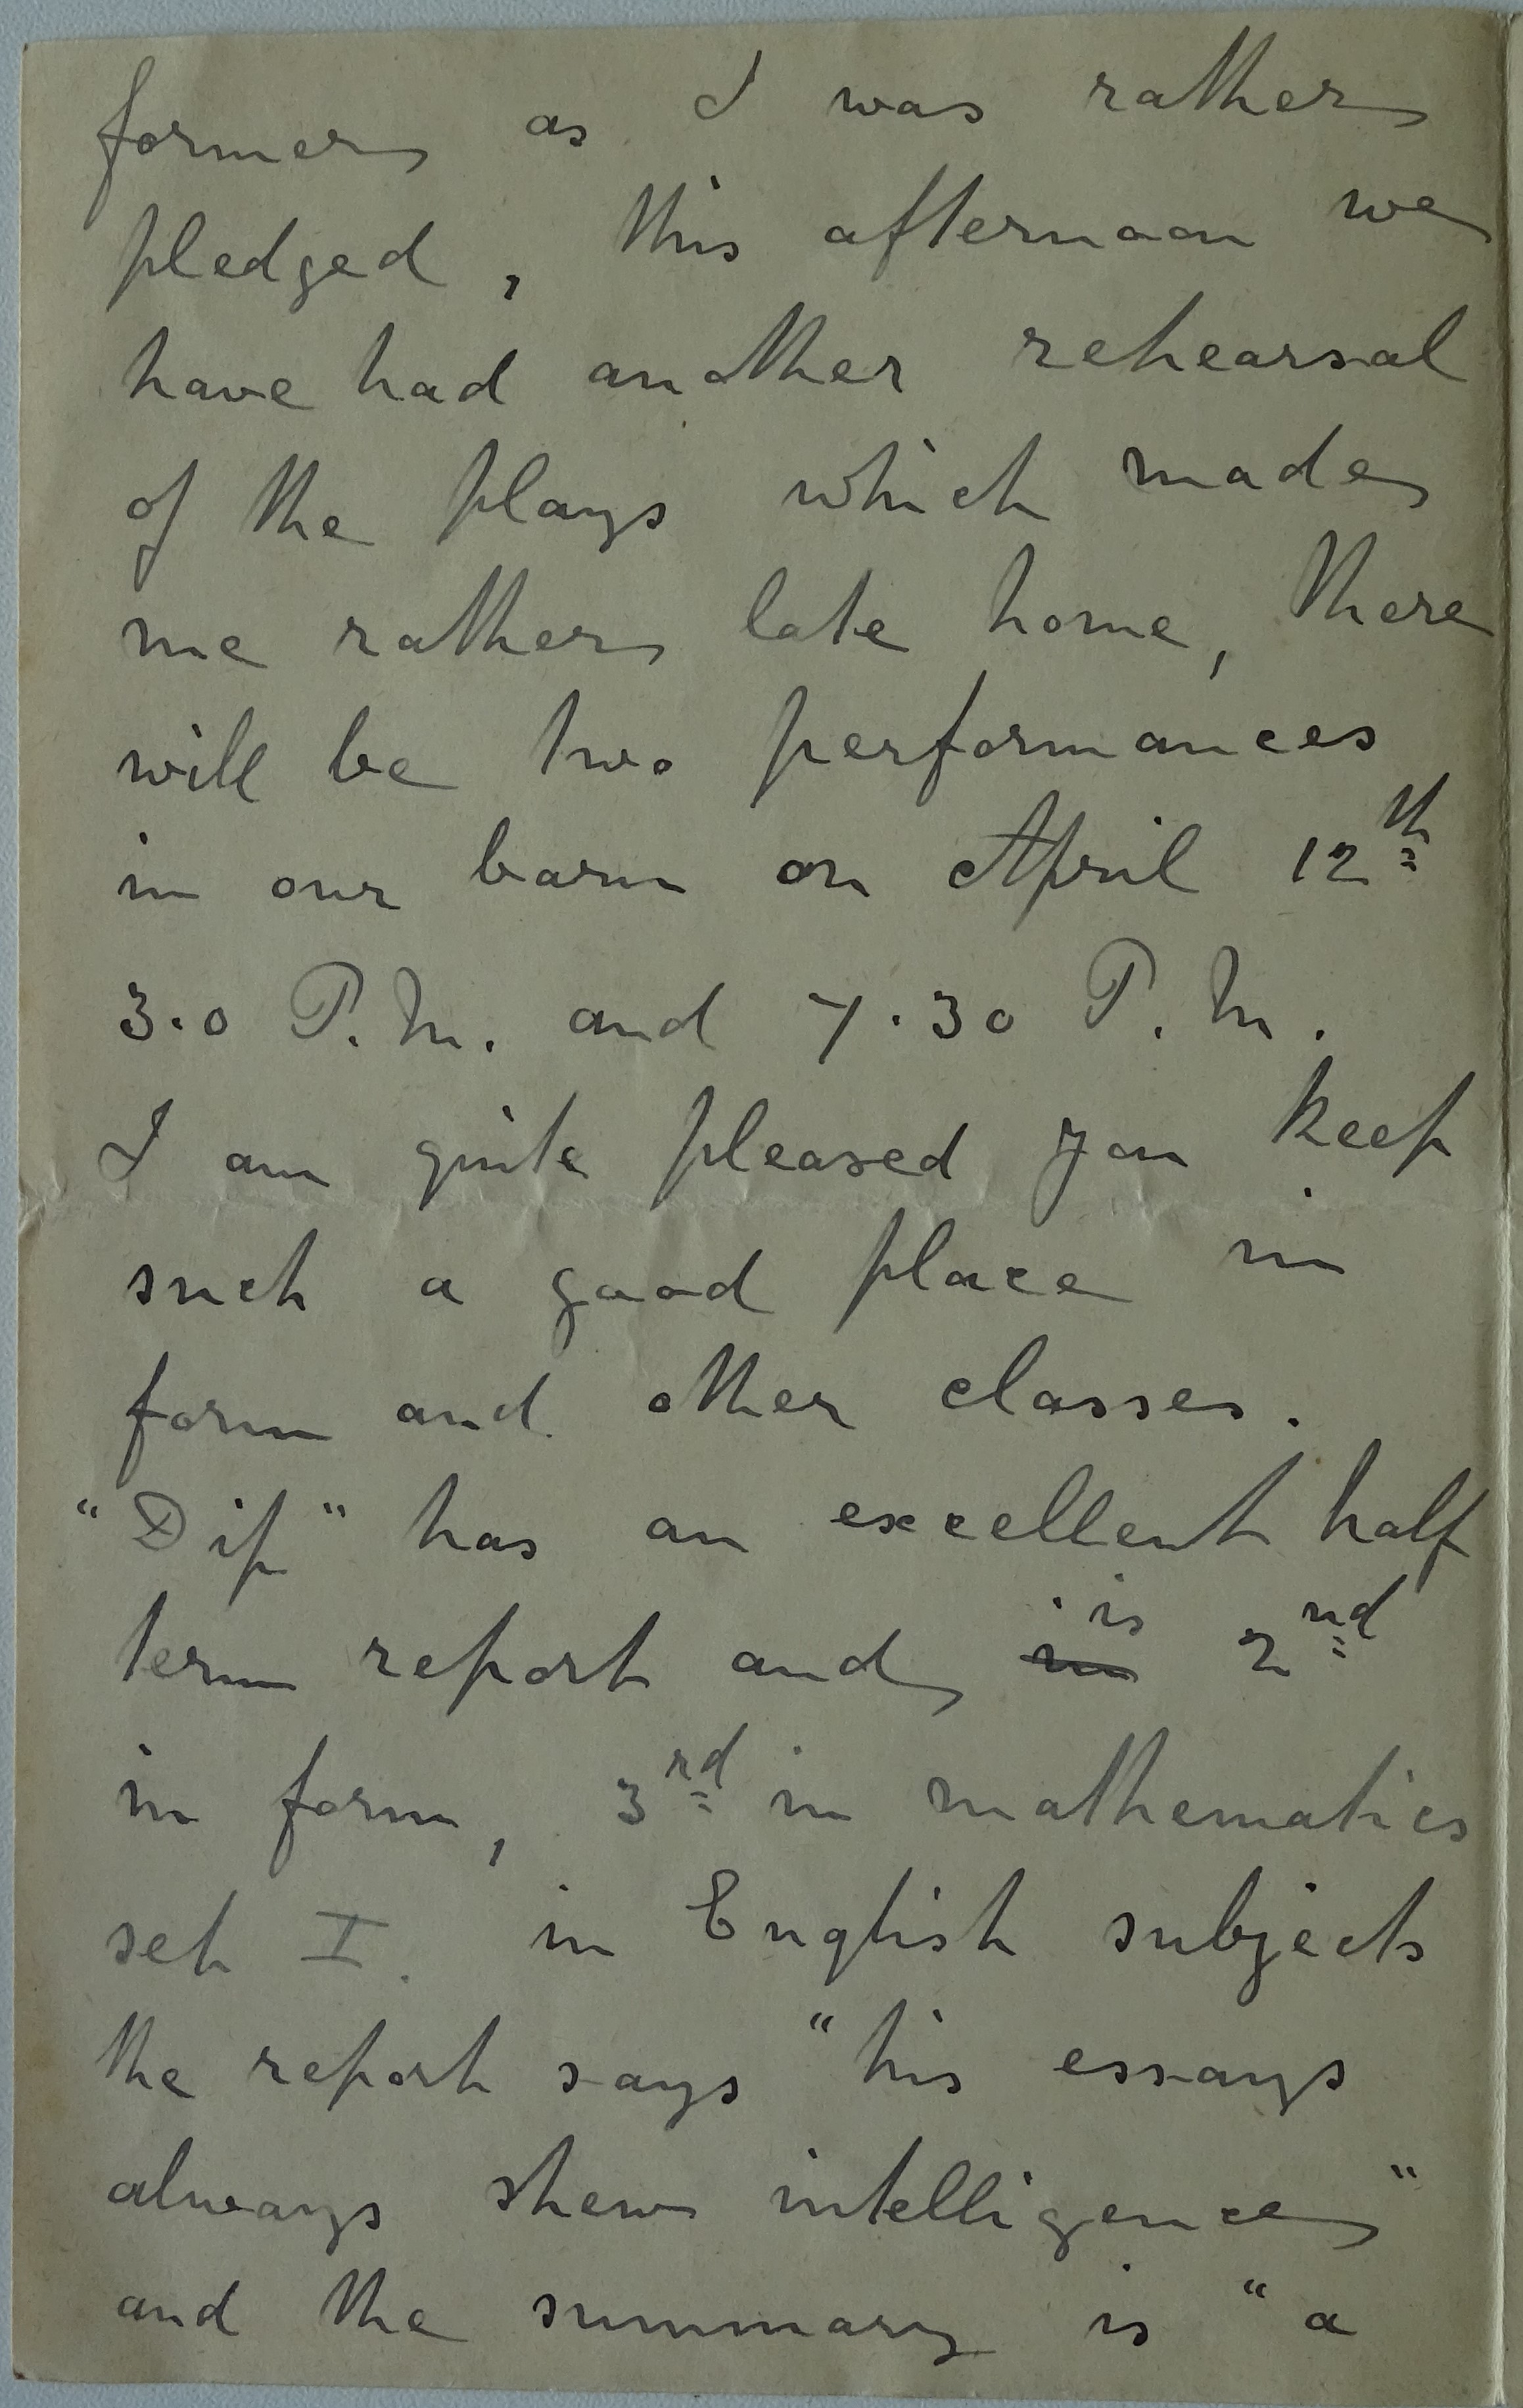 former as I was rather
pledged, this afternoon we
have had another rehearsal
of the plays which made
me rather late home, there
will be two performances
in our barn on April 12th
3.0 P.M. and 7.30 P.M.
I am quite pleased you keep
such a good place in
form and other classes.
"Dip" has an excellent half
term report and in is 2nd
in form, 3rd in mathematics
set I. in English subjects
the report says "his essays
always shew intelligence"
and the summary is "a